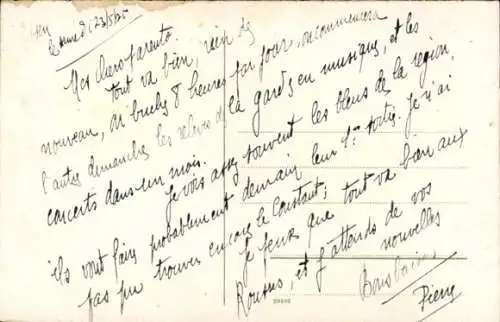 le samedi 23/5/25
Mes chers parents.
tout va bien, rien de
nouveau, ni buches 8 heures par jour, recommencera
l'autre dimanche les relèves de la garde en musique, et les
concerts dans un mois. Je vois assez souvent les bleus de la région,
ils vont faire probablement demain leur 1re sortie. Je n'ai
pas pu trouver encore le Constant; tout va bien aux
Je pense que
Rousses, et j'attends de vos
nouvelles
Bons baisers
Pierre